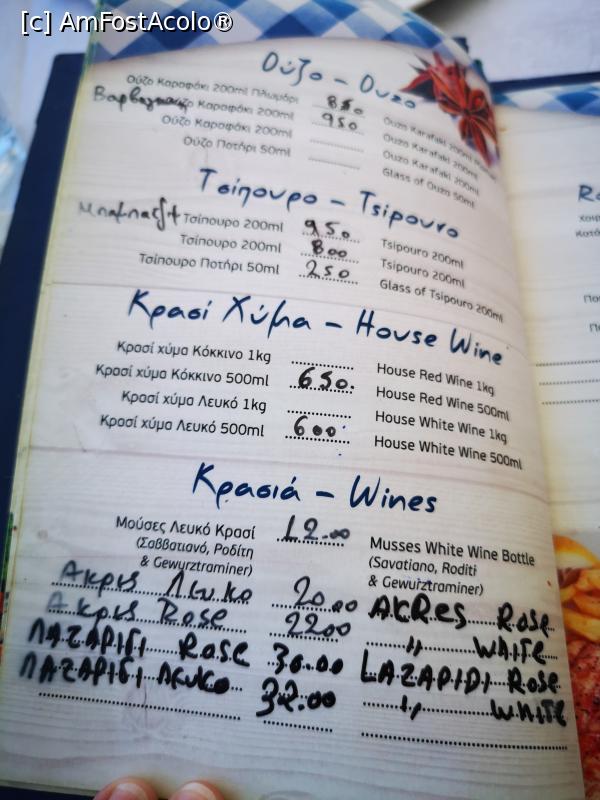 [c] AmFostAcolo®
Ούζο – Ouzo
Ούζο Καραφάκι 200ml Πλωμάρι 850 Ouzo Karafaki 200ml
Ούζο Καραφάκι 200ml 950 Ouzo Karafaki 200ml
Ούζο Καραφάκι 200ml Ouzo Karafaki 200ml
Ούζο Ποτήρι 50ml Glass of Ouzo 50ml
Τσίπουρο – Tsipouro
Τσίπουρο 200ml 950 Tsipouro 200ml
Τσίπουρο 200ml 800 Tsipouro 200ml
Τσίπουρο Ποτήρι 50ml 250 Glass of Tsipouro 200ml
Κρασί Χύμα – House Wine
Κρασί χύμα Κόκκινο 1kg House Red Wine 1kg
Κρασί χύμα Κόκκινο 500ml 650. House Red Wine 500ml
Κρασί χύμα Λευκό 1kg House White Wine 1kg
Κρασί χύμα Λευκό 500ml 600 House White Wine 500ml
Κρασιά – Wines
Μούσες Λευκό Κρασί 12.00 Musses White Wine Bottle
(Σαββατιανό, Ροδίτη (Savatiano, Roditi
& Gewurztraminer) & Gewurztraminer)
Ακρις Λευκο 20.00 AKRES ROSE
Ακρις Rose 22.00 ,, WHITE
ΛΑΖΑΡΙΔΙ ROSE 30.00 LAZAPIDI ROSE
ΛΑΖΑΡΙΔΙ ΛΕΥΚΟ 32.00 ,, WHITE